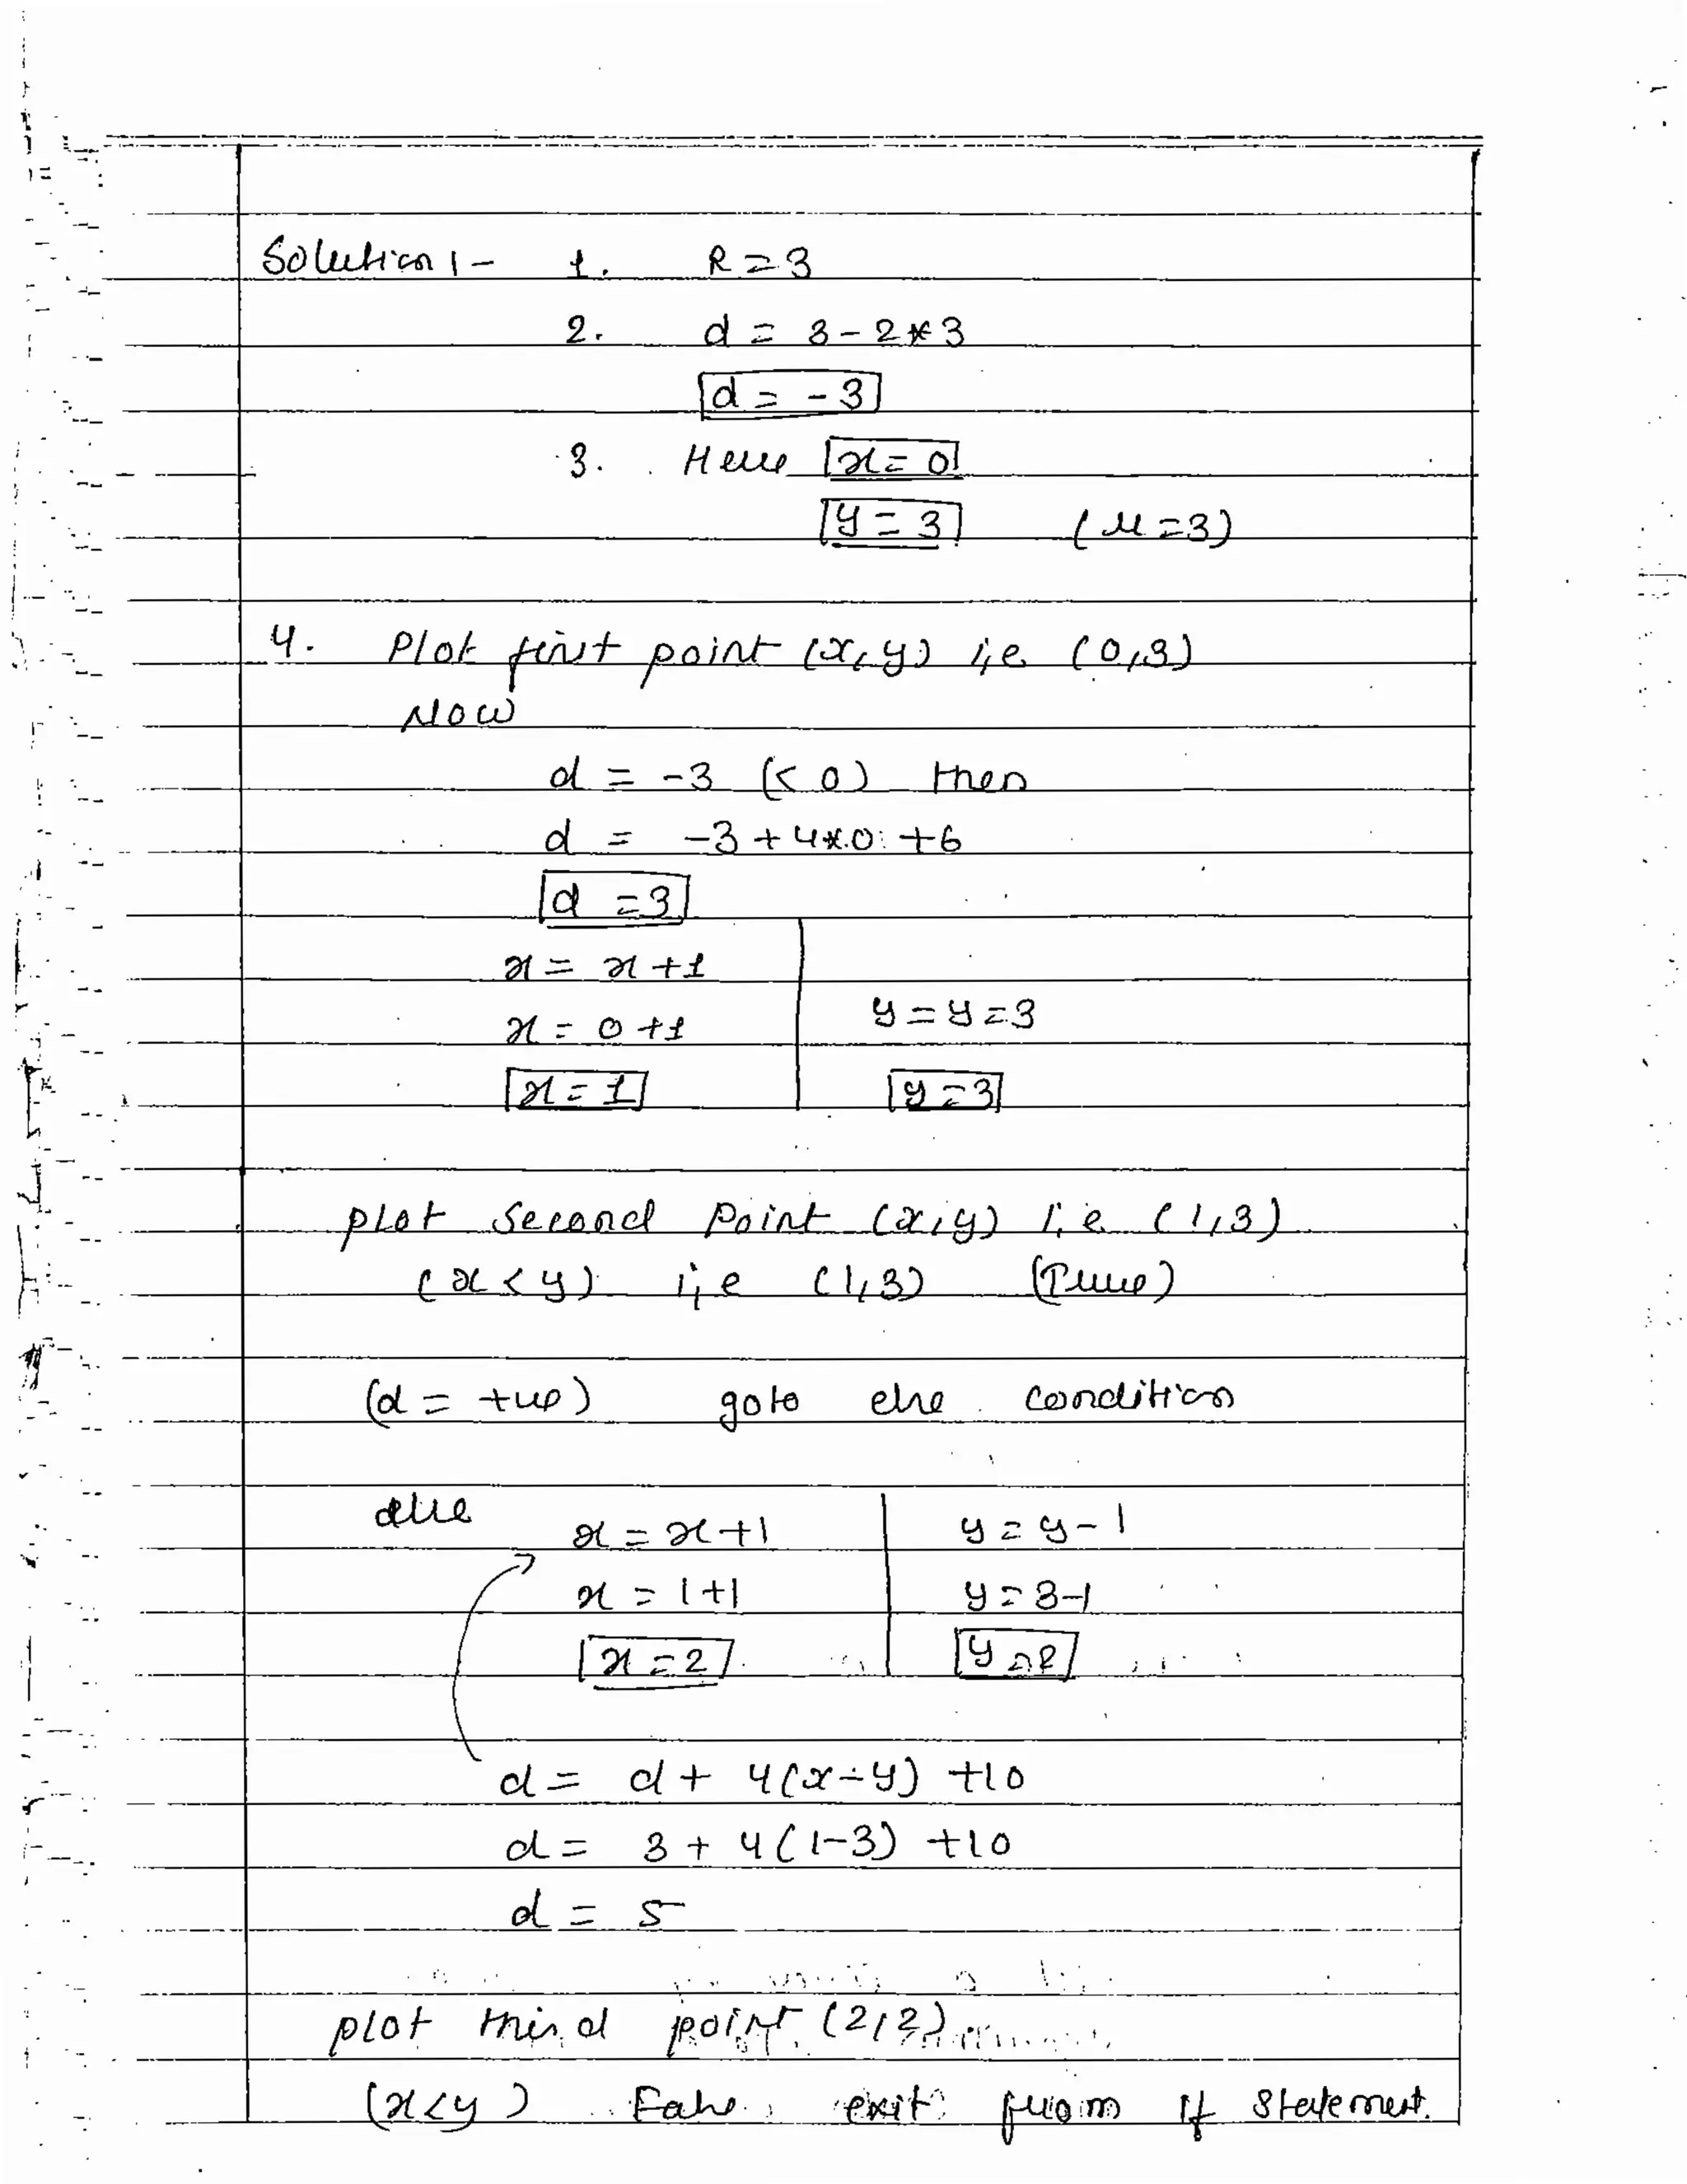 Solution :- 1. R = 3
2. d = 3 - 2 * 3
d = -3
3. Here x = 0
y = 3 (r = 3)
4. Plot first point (x, y) i,e (0,3)
Now
d = -3 (< 0) then
d = -3 + 4*0 + 6
d = 3
x = x + 1
x = 0 + 1 y = y = 3
x = 1 y = 3
plot second point (x,y) i,e (1,3)
(x < y) i,e (1,3) (True)
(d = +ve) goto else condition
else x = x + 1 y = y - 1
x = 1 + 1 y = 3-1
x = 2 y = 2
d = d + 4(x - y) + 10
d = 3 + 4(1-3) + 10
d = 5
plot third point (2,2)
(x < y) False exit from if statement.